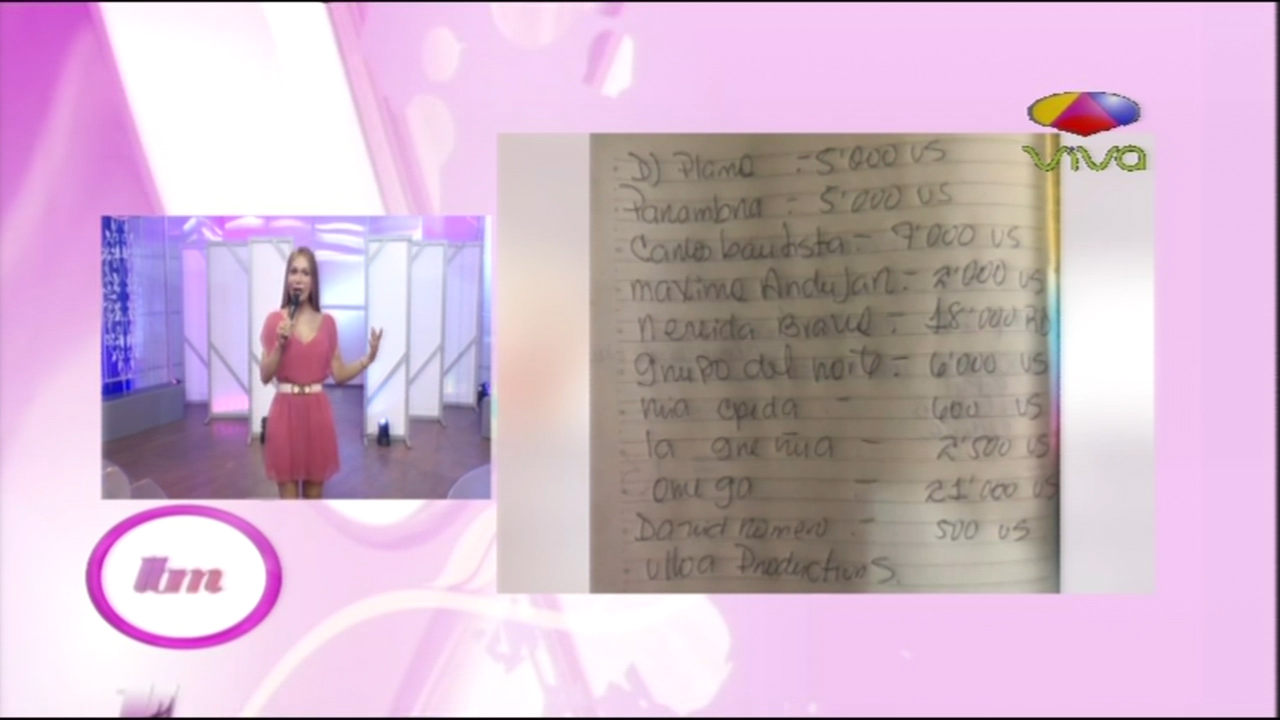 VIVA
· D) Plano - 5'000 US
· Panambna - 5'000 US
· Carlos bautista - 7'000 US
· maximo Andujar - 2'000 US
· Nereida Bravo - 18'000 RD
· grupo del norte - 6'000 US
· mia cpeda - 600 US
· la greñua - 2'500 US
· omega - 21'000 US
· David romero - 500 US
· ulloa Productions.
tbm